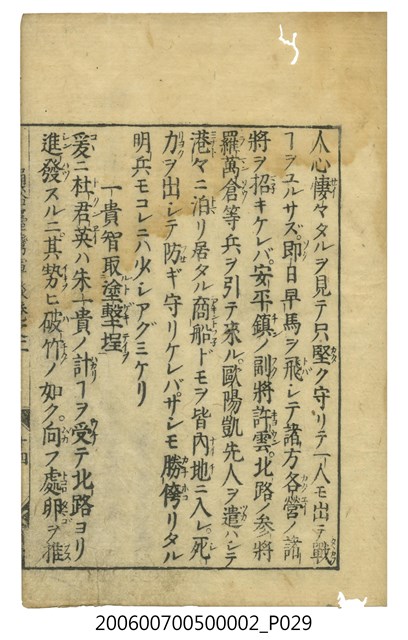 人心悽々タルヲ見テ只堅ク守リテ一人モ出テ戰
フヿヲユルサズ即日早馬ヲ飛シテ諸方各營ノ諸
將ヲ招キケレバ安平鎮ノ副將許雲北路ノ參將
羅萬倉等兵ヲ引テ來ル歐陽凱先人ヲ遣ハシテ
港々ニ泊リ居タル商船ドモヲ皆内地ニ入レ死
力ヲ出シテ防ギ守リケレバサシモ勝誇リタル
明兵モコレニハ少シアグミケリ
一貴智取塗墼埕
爰ニ杜君英ハ朱一貴ノ計ヿヲ受テ北路ヨリ
進發スルニ其勢ヒ破竹ノ如ク向フ處卵ヲ推
200600700500002_P029